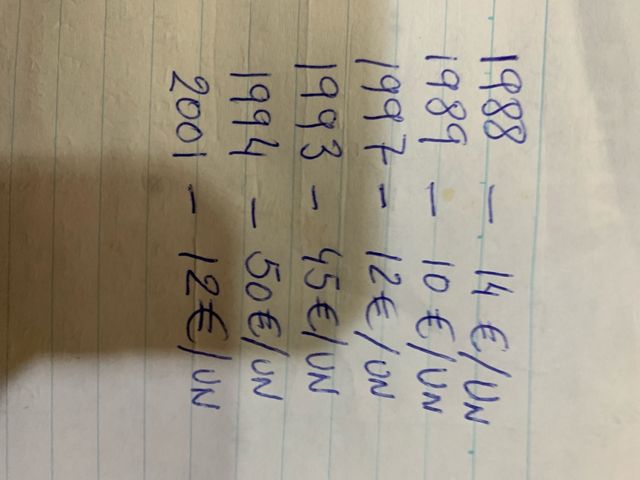 1988 - 14 €/UN
1989 - 10 €/UN
1997 - 12€/UN
1993 - 45€/UN
1994 - 50€/UN
2001 - 12€/UN